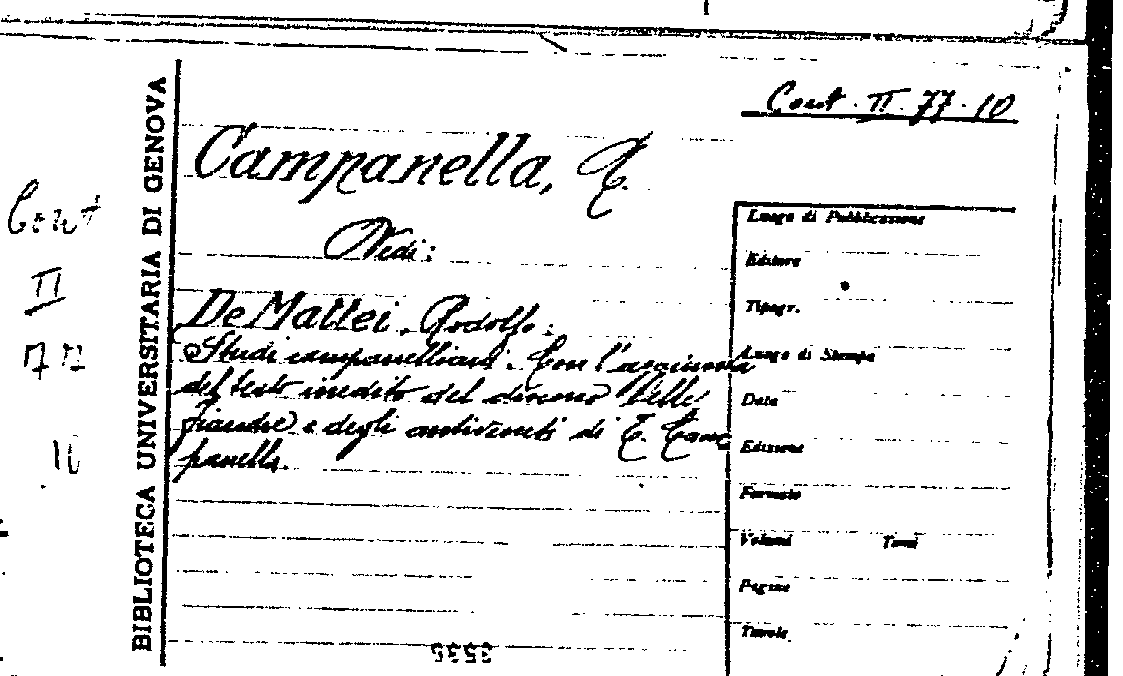 Cont. II. 77. 10
Campanella, T.
Vedi:
De Mattei, Rodolfo:
Studi campanelliani. Con l'aggiunta
del testo inedito del discorso delle
Fiandre e degli antiveneti di T. Cam=
panella.
Cont
II
77
10
BIBLIOTECA UNIVERSITARIA DI GENOVA
Luogo di Pubblicazione
Editore
Tipogr.
Luogo di Stampa
Data
Edizione
Formato
Volumi Tomi
Pagine
Tavole
3535